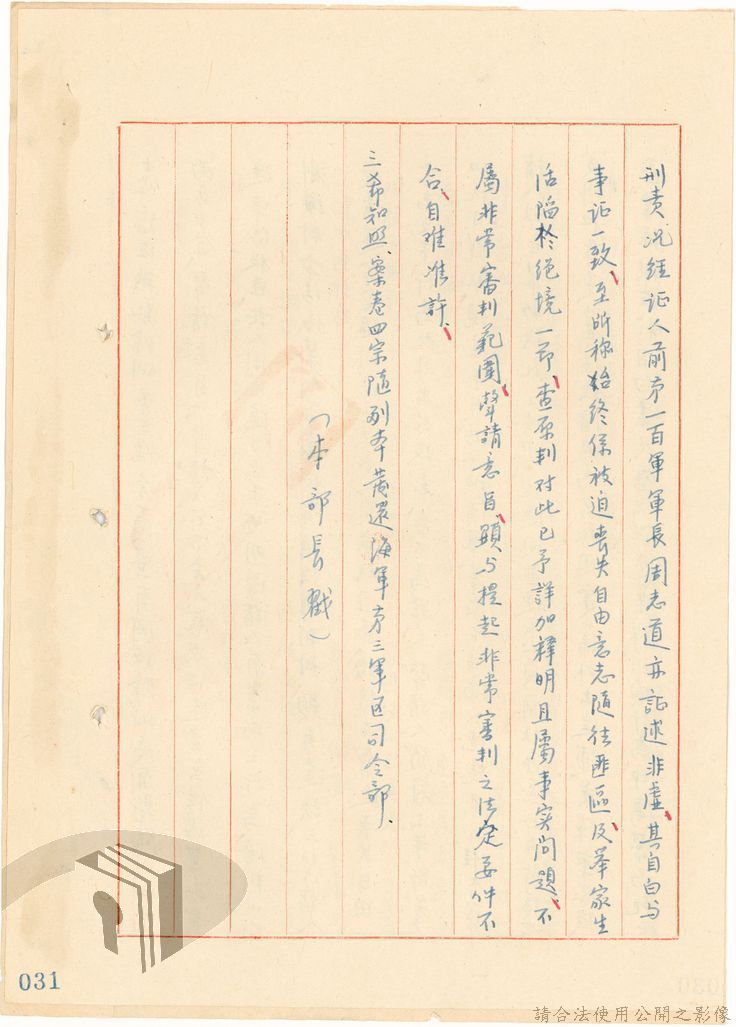 刑責况經证人前㐧一百軍軍長周志道亦証述非虛、其自白与
事证一致、至所称始终係被迫丧失自由意志随往匪區、及举家生
活陷於绝境一节、查原判对此已予詳加释明且屬事实问题、不
屬非常審判范圍、聲請意旨、顕与提起非常審判之法定要件不
合、自难准許、
三希知照、案卷四宗随副本發還海軍㐧三軍区司令部、
（本部長戳）
031
請合法使用公開之影像